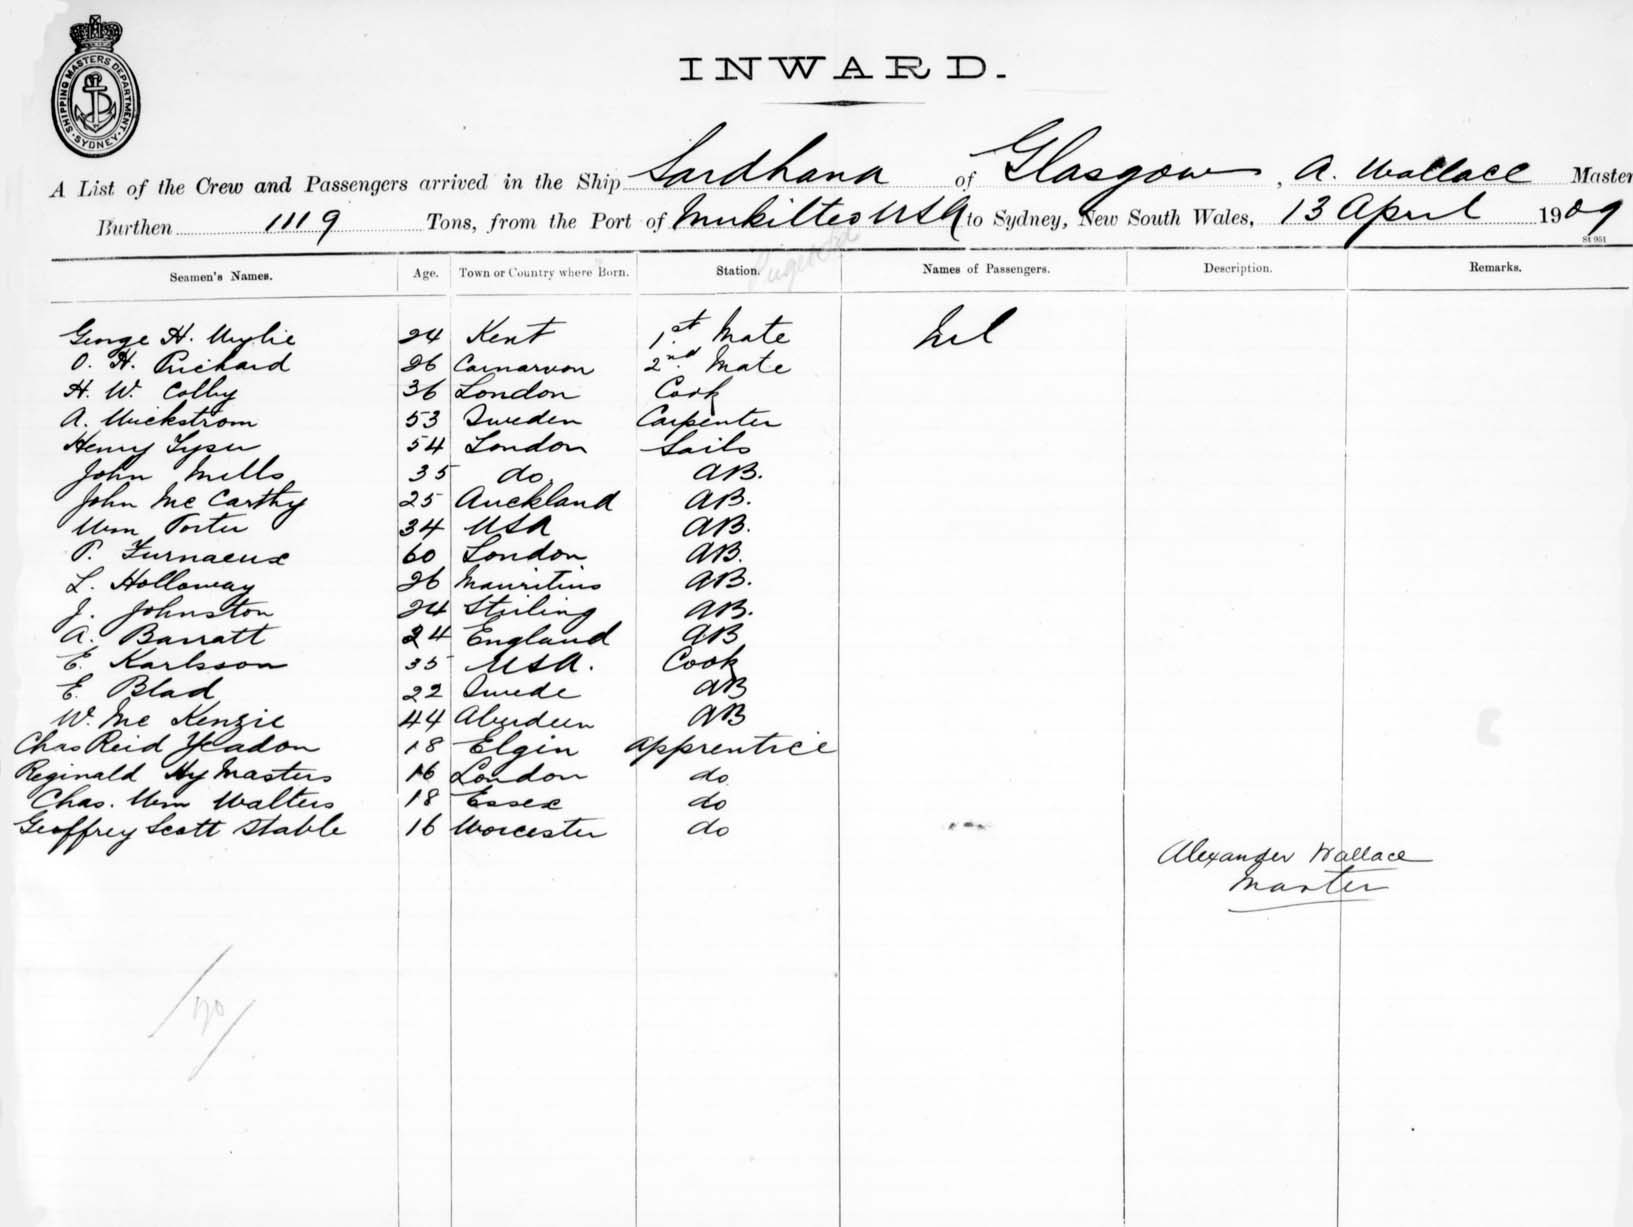 SHIPPING MASTERS DEPARTMENT · SYDNEY ·
INWARD.
A List of the Crew and Passengers arrived in the Ship Sardhana of Glasgow, A. Wallace Master
Burthen 1119 Tons, from the Port of Mukilteo USA to Sydney, New South Wales, 13 April 1909
St 951
Seamen's Names. Age. Town or Country where Born. Station. Names of Passengers. Description. Remarks.
George H. Wylie 24 Kent 1st Mate Nil
O. H. Prichard 26 Carnarvon 2nd Mate
H. W. Colby 36 London Cook
A. Wickstrom 53 Sweden Carpenter
Henry Tyser 54 London Sails
John Mills 35 do. AB.
John Mc Carthy 25 Auckland AB.
Wm Porter 34 USA AB.
P. Furnaeux 60 London AB.
L. Holloway 26 Mauritius AB.
J. Johnston 24 Stirling AB.
A. Barratt 24 England AB
E. Karlsson 35 USA. Cook
E. Blad 22 Swede AB
W. Mc Kenzie 44 Aberdeen AB
Chas Reid Yeadon 18 Elgin apprentice
Reginald Hy Masters 16 London do
Chas. Wm Walters 18 Essex do
Geoffrey Scott Stable 16 Worcester do
Alexander Wallace
Master